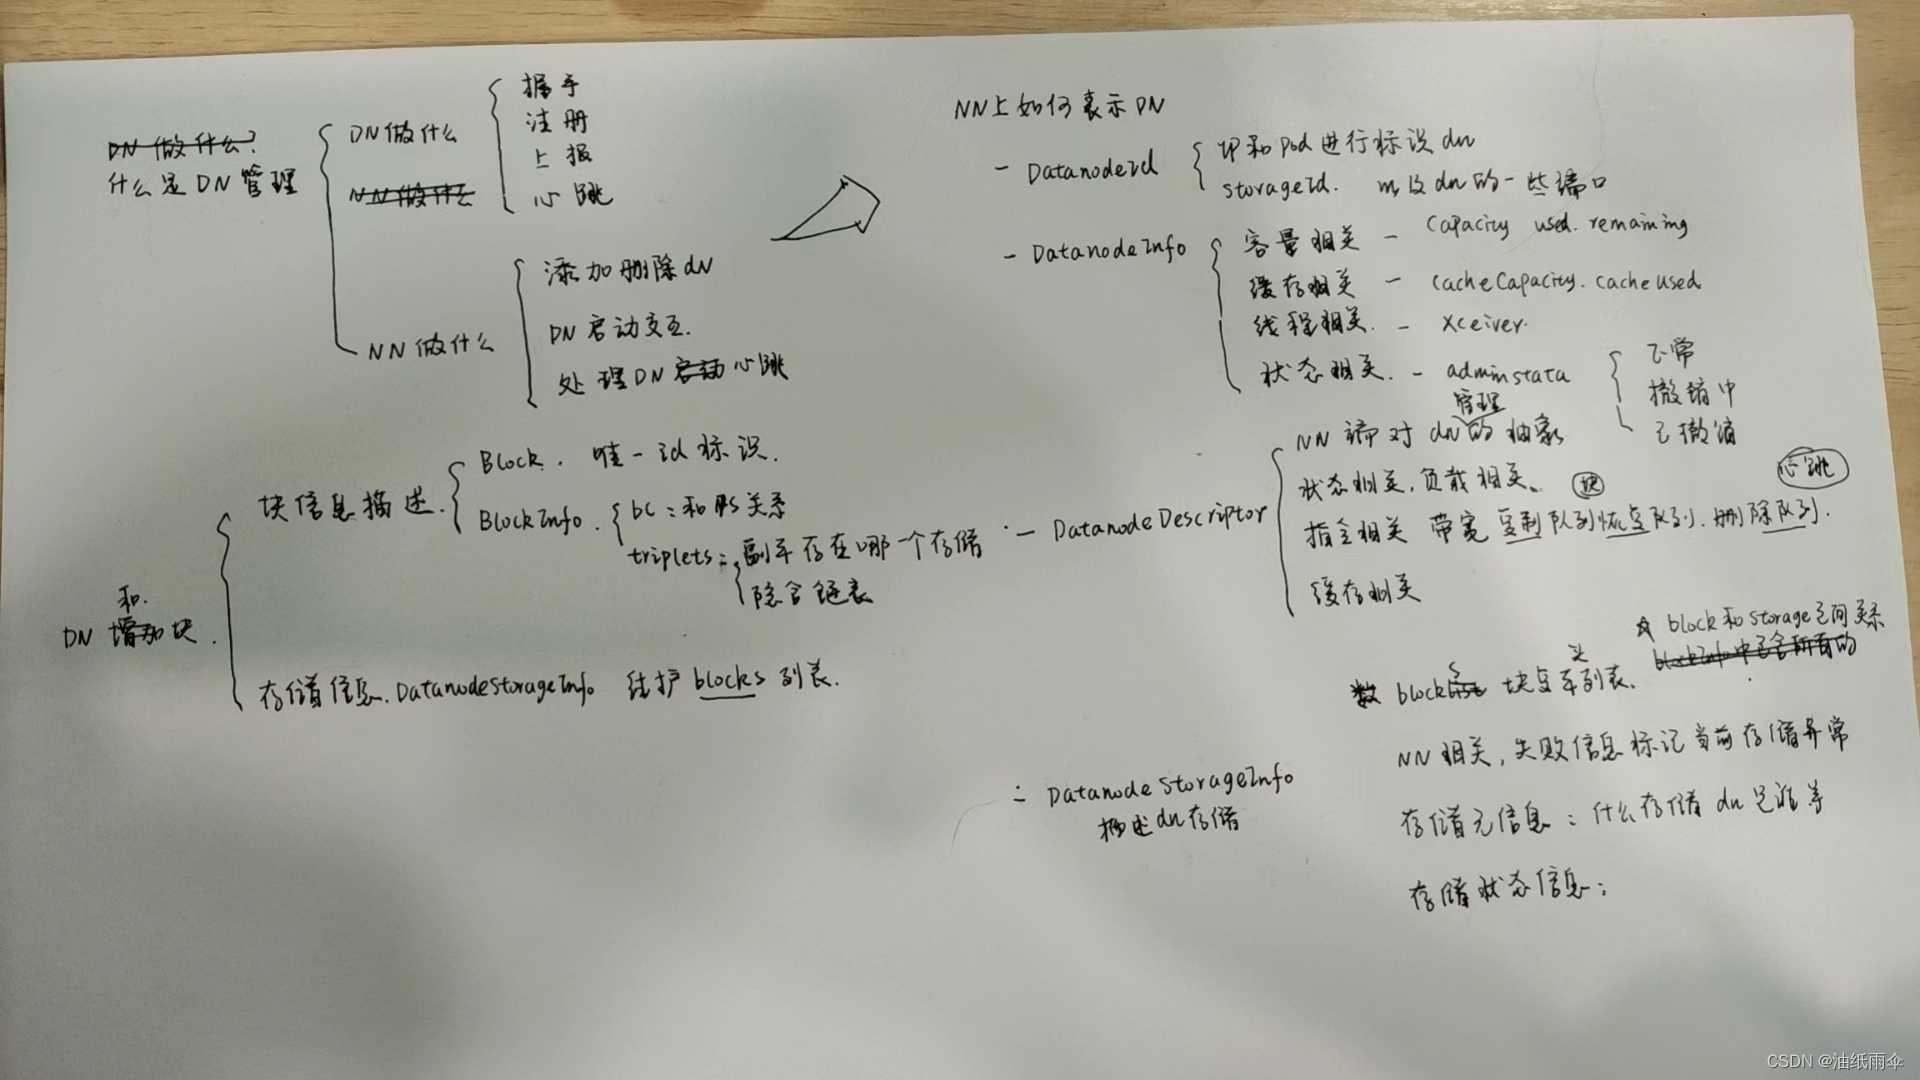 DN 做什么?
什么是 DN 管理
DN 做什么
握手
注册
上报
心跳
NN 做什么
NN 做什么
添加删除 dN
DN 启动交互.
处理 DN 启动 心跳
块信息描述.
Block. 唯一id标识.
BlockInfo.
bc:和 关系
triplets: 副本存在哪一个存储
隐含链表
和.
DN 增加块.
存储信息. DatanodeStorageInfo 维护 blocks 列表.
NN上如何表示 DN
- DatanodeId
IP和Pod进行标识dn
storageId. 以及dn的一些端口
- DatanodeInfo
容量相关 - Capacity used. remaining
缓存相关 - cacheCapacity. cacheUsed
线程相关. - Xceiver.
状态相关. - adminstata
管理
正常
撤销中
已撤销
- DatanodeDescriptor
NN端对dn的抽象
状态相关, 负载相关. 块
心跳
指令相关 带宽 复制队列 恢复队列. 删除队列.
缓存相关
☆ block和Storage之间关系
blockInfo中包含所有的
数 blocklist 块 列表.
NN 相关, 失败信息标记当前存储异常
= DatanodeStorageInfo
描述dn存储
存储元信息: 什么存储 dn是谁等
存储状态信息:
CSDN @油纸雨伞